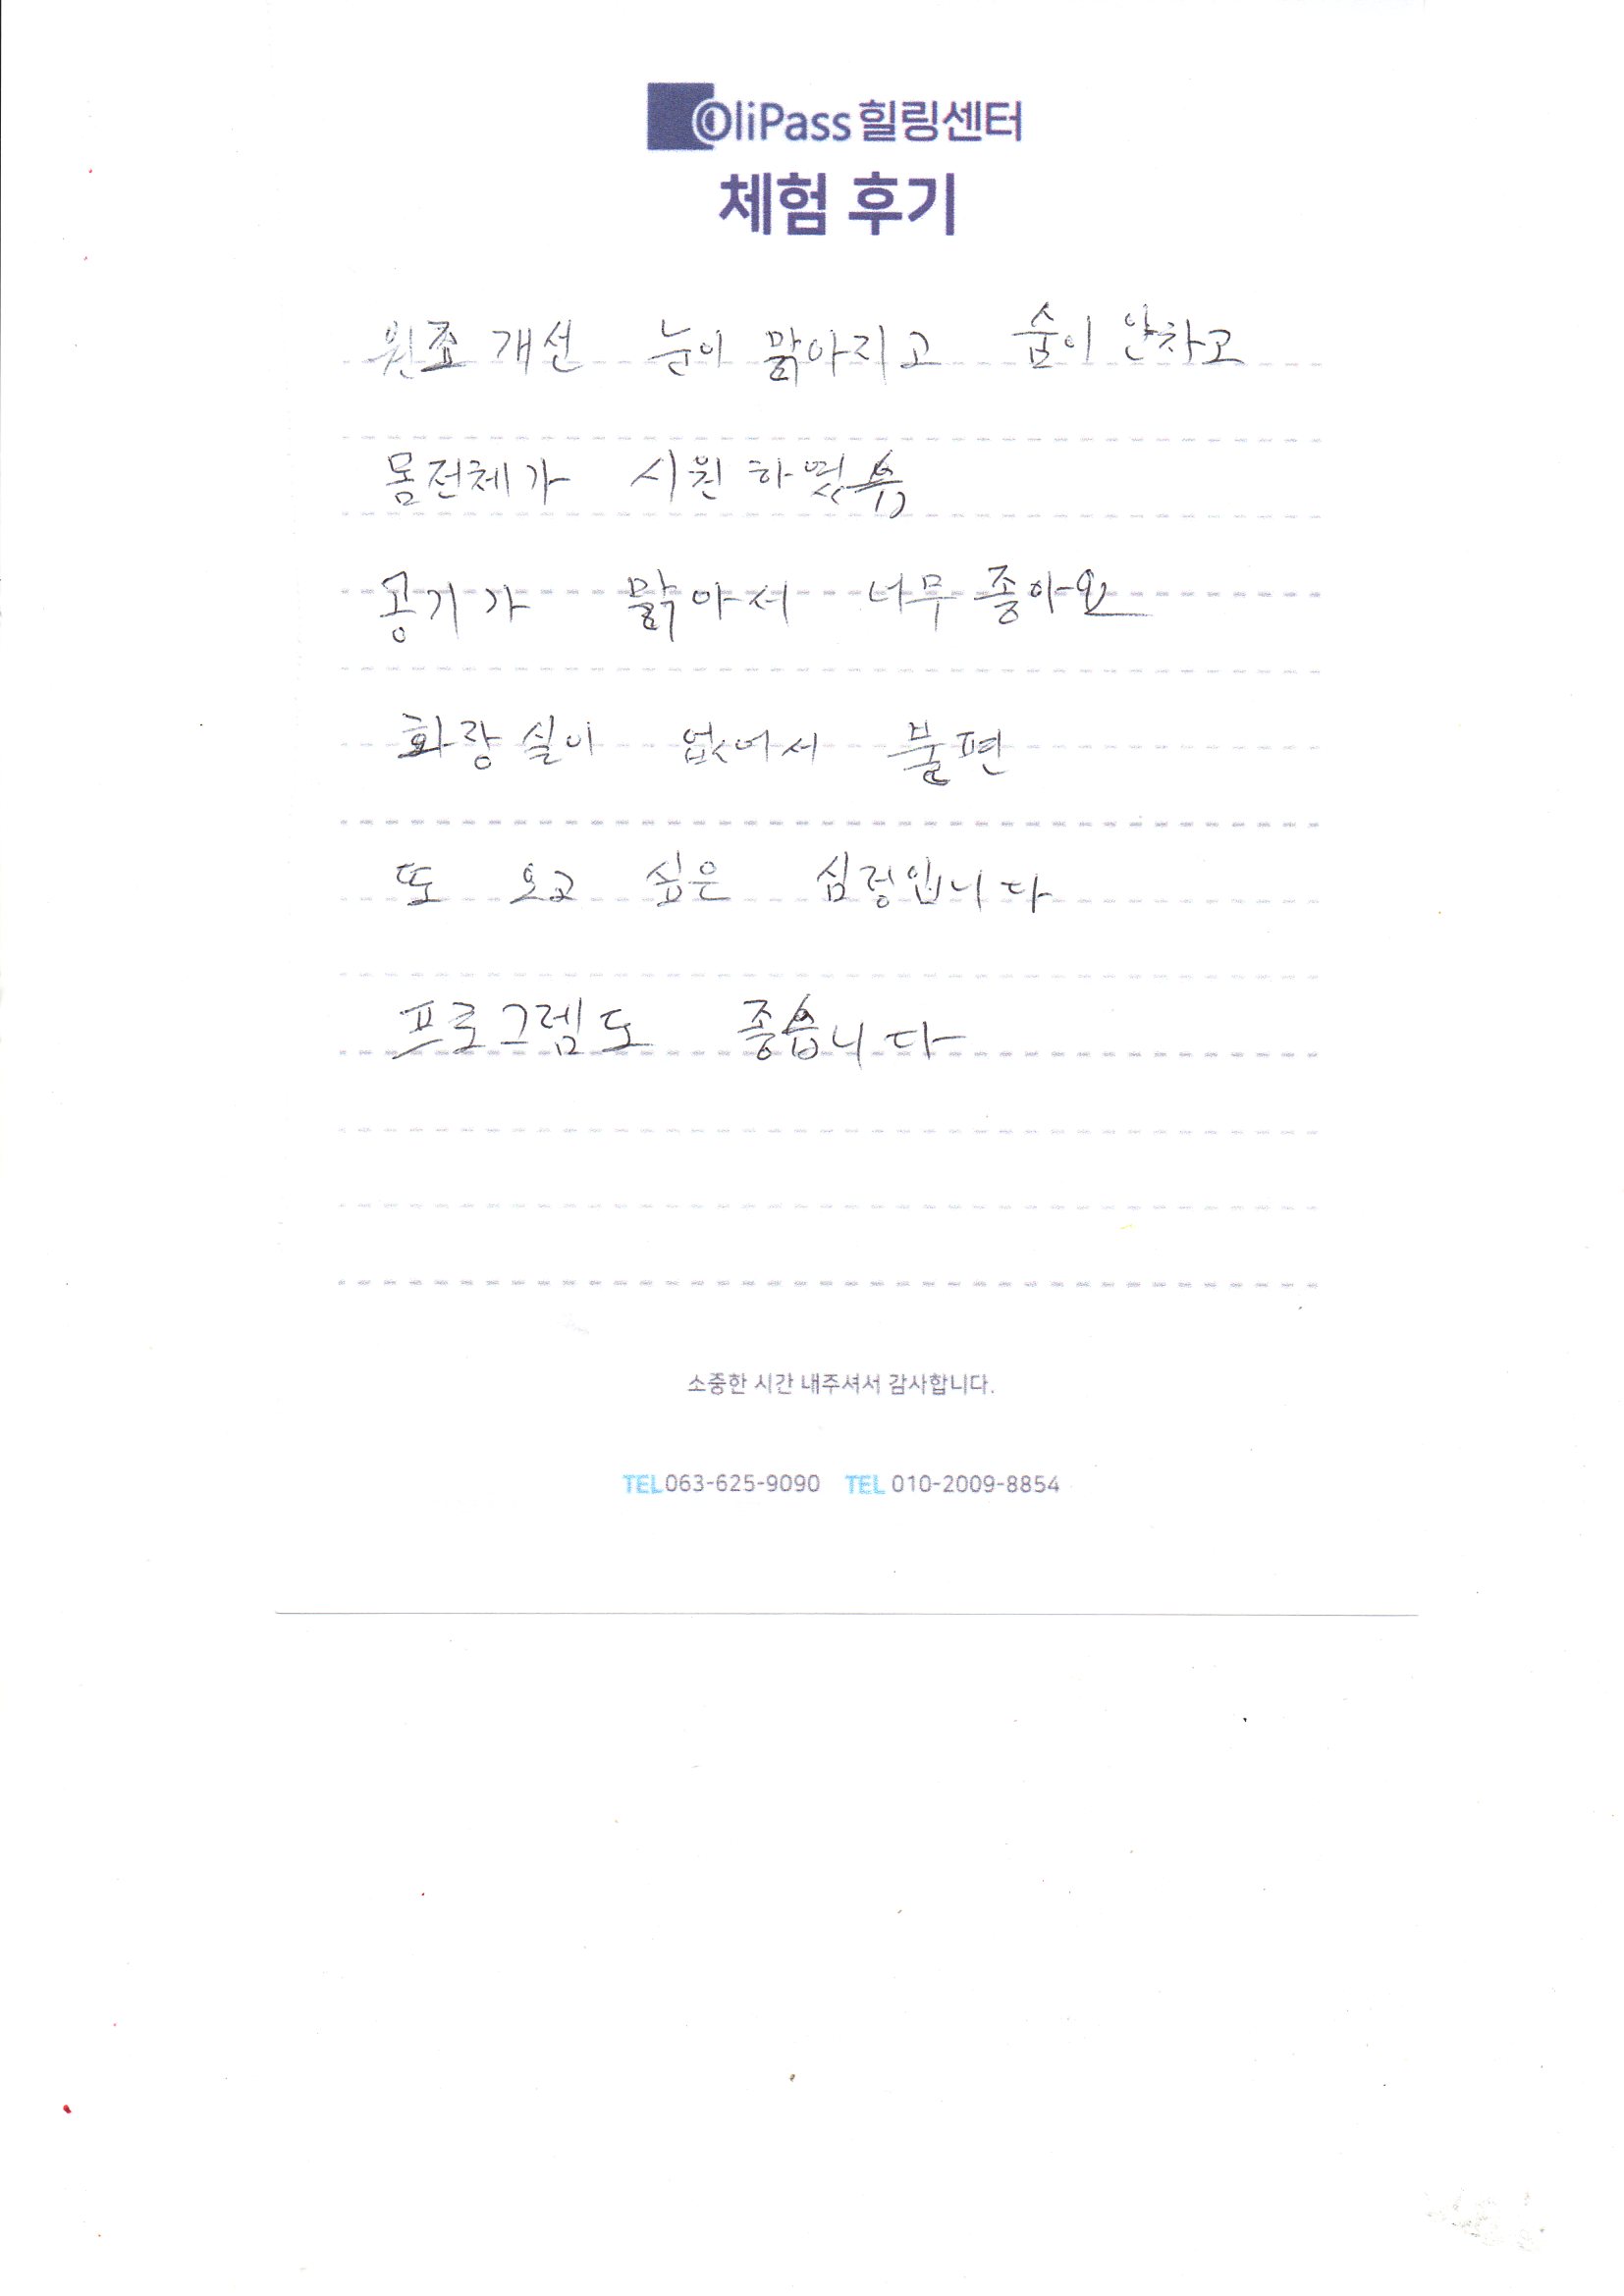 OliPass 힐링센터
체험 후기
개선 눈이 맑아지고 숨이 안차고
몸전체가 시원하였습
공기가 맑아서 너무 좋아요
화장실이 없어서 불편
또 오고 싶은 심정입니다
프로그렘도 좋습니다
소중한 시간 내주셔서 감사합니다.
TEL 063-625-9090 TEL 010-2009-8854